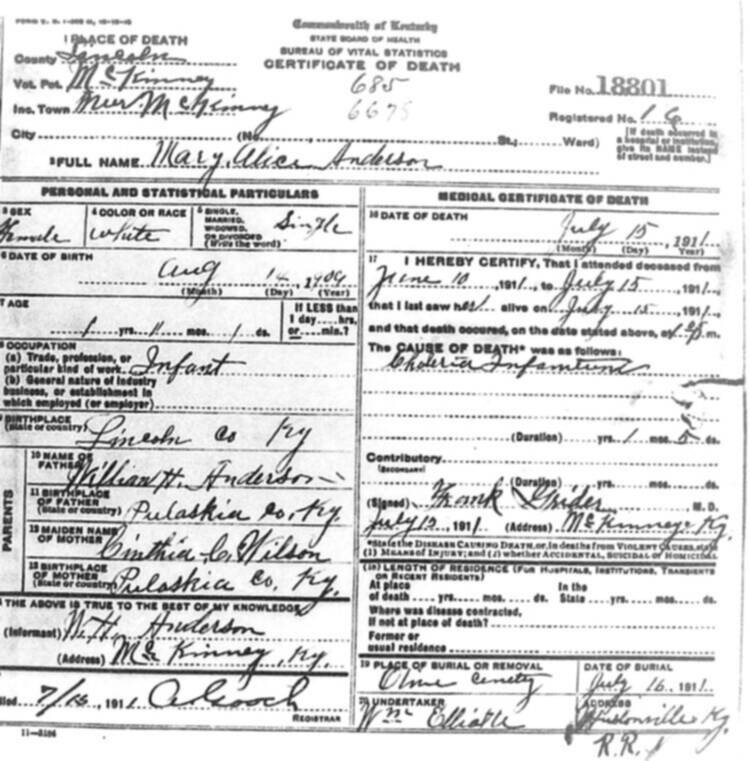 Commonwealth of Kentucky
STATE BOARD OF HEALTH
BUREAU OF VITAL STATISTICS
CERTIFICATE OF DEATH
1 PLACE OF DEATH
County Lincoln
Vot. Pct. McKinney
Inc. Town Near McKinney
City
(No.
St.; Ward)
685
6675
File No. 18801
Registered No. 16
[If death occurred in a hospital or institution, give its NAME instead of street and number.]
2 FULL NAME Mary Alice Anderson
PERSONAL AND STATISTICAL PARTICULARS
3 SEX
Female
4 COLOR OR RACE
white
5 SINGLE, MARRIED, WIDOWED, OR DIVORCED
(Write the word)
Single
6 DATE OF BIRTH
Aug 14, 1909
(Month) (Day) (Year)
7 AGE
1 yrs. 11 mos. 1 ds.
If LESS than
1 day....hrs,
or....min.?
8 OCCUPATION
(a) Trade, profession, or
particular kind of work Infant
(b) General nature of industry
business, or establishment in
which employed (or employer)
9 BIRTHPLACE
(State or country) Lincoln Co Ky
PARENTS
10 NAME OF
FATHER William H. Anderson
11 BIRTHPLACE
OF FATHER
(State or country) Pulaskia Co. Ky.
12 MAIDEN NAME
OF MOTHER Cinthia C. Wilson
13 BIRTHPLACE
OF MOTHER
(State or country) Pulaskia Co. Ky.
THE ABOVE IS TRUE TO THE BEST OF MY KNOWLEDGE
(Informant) W. H. Anderson
(Address) McKinney, Ky.
Filed 7/15, 1911 A Gooch
REGISTRAR
11-3184
MEDICAL CERTIFICATE OF DEATH
16 DATE OF DEATH
July 15, 1911
(Month) (Day) Year
17
I HEREBY CERTIFY, That I attended deceased from
June 10, 1911, to July 15, 1911,
that I last saw her alive on July 15, 1911,
and that death occured, on the date stated above, at m.
The CAUSE OF DEATH* was as follows:
Choleria Infantum
(Duration) yrs. 1 mos. 5 ds.
Contributory
(SECONDARY)
(Duration) yrs. mos. ds.
(Signed) Frank Grider M. D.
July 15, 1911 (Address) McKinney Ky.
*State the DISEASE CAUSING DEATH, or, in deaths from VIOLENT CAUSES, state
(1) MEANS OF INJURY; and (2) whether ACCIDENTAL, SUICIDAL OR HOMICIDAL
(18) LENGTH OF RESIDENCE (FOR HOSPITALS, INSTITUTIONS, TRANSIENTS
OR RECENT RESIDENTS)
At place In the
of death yrs. mos. ds. State yrs. mos. ds.
Where was disease contracted,
if not at place of death?
Former or
usual residence
19 PLACE OF BURIAL OR REMOVAL
DATE OF BURIAL
July 16, 1911
20 UNDERTAKER
Wm
ADDRESS
Hustonville Ky
R.R. 1